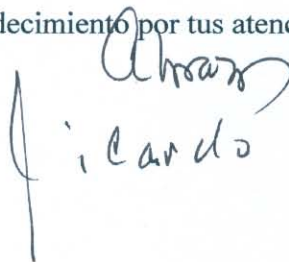 decimiento por tus atenc
Abrazo
Ricardo